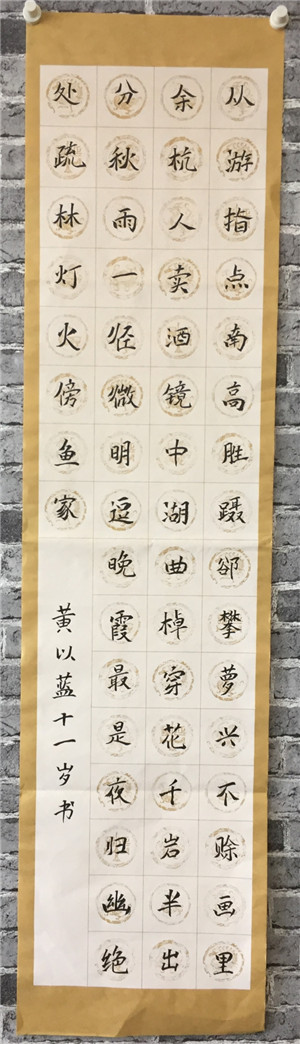 从游指点南高胜蹑郤攀萝兴不赊画里
余杭人卖酒镜中湖曲棹穿花千岩半出
分秋雨一径微明逗晚霞最是夜归幽绝
处疏林灯火傍鱼家
黄以蓝十一岁书